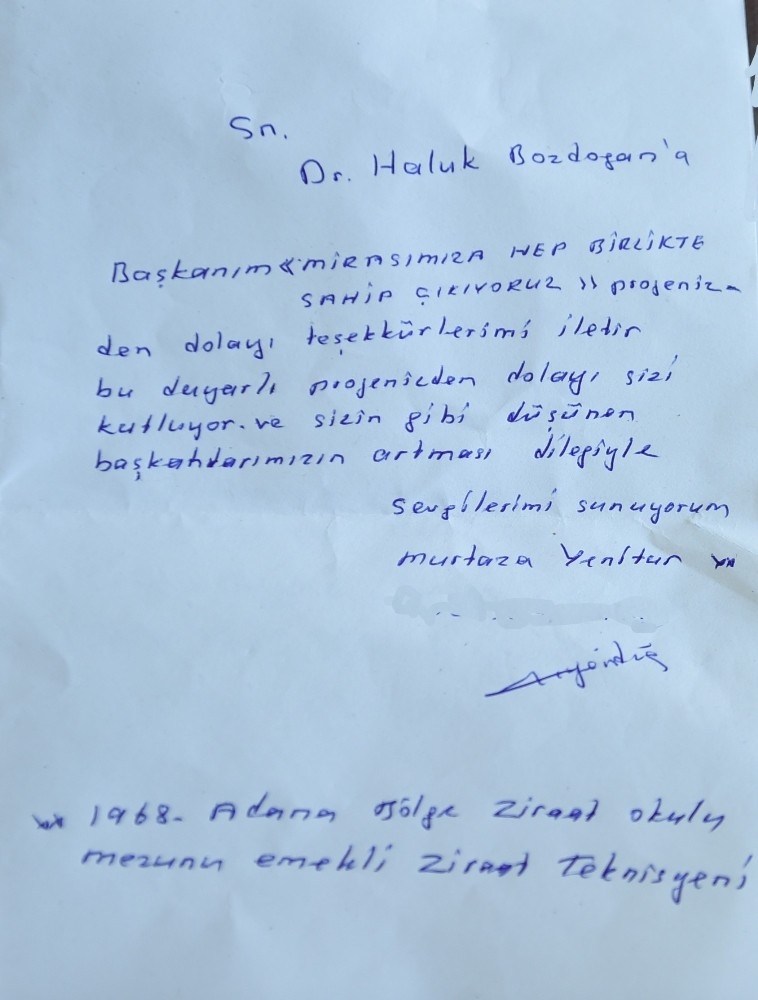 Sn.
Dr. Haluk Bozdoğan'a
Başkanım «MİRASIMIZA HEP BİRLİKTE
SAHİP ÇIKIYORUZ» projeniz-
den dolayı teşekkürlerimi iletir
bu duyarlı projenizden dolayı sizi
kutluyor. ve sizin gibi düşünen
başkanlarımızın artması dileğiyle
Sevgilerimi sunuyorum
Murtaza Yenitur **
** 1968- Adana Bölge Ziraat okulu
mezunu emekli Ziraat Teknisyeni